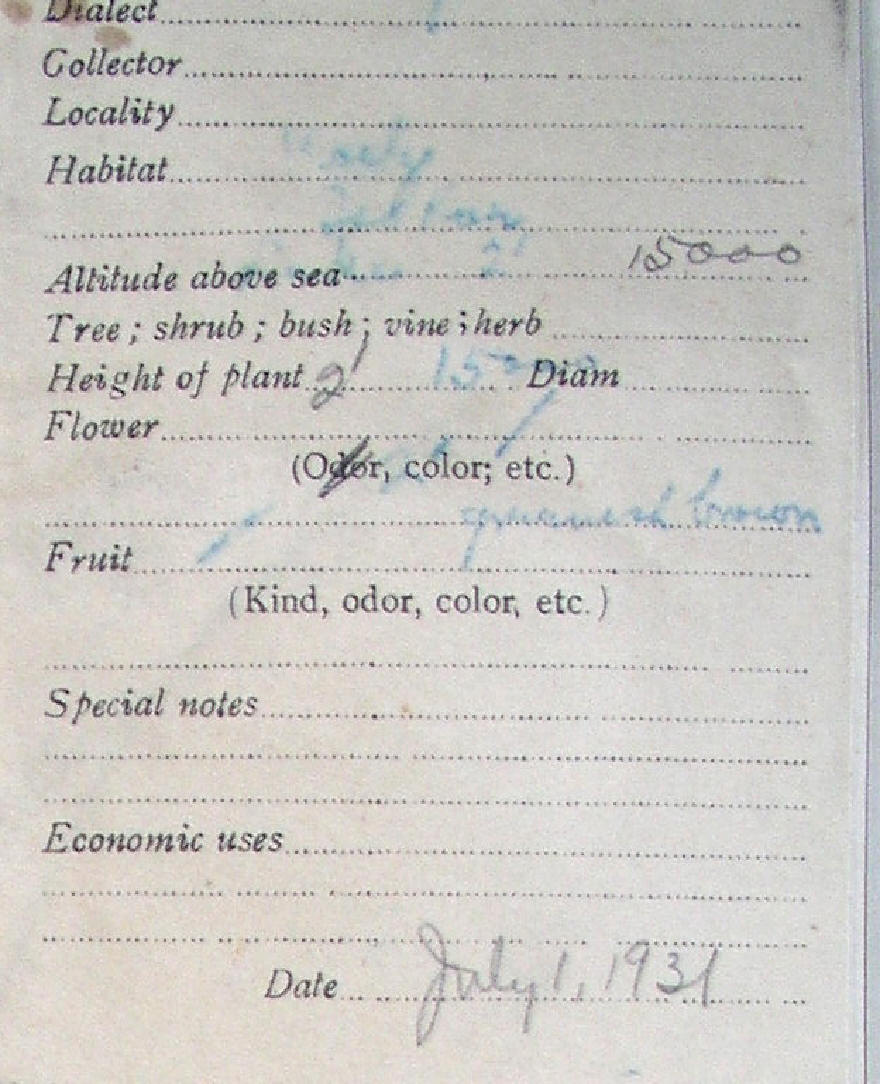 Dialect
Collector
Locality
Habitat
Altitude above sea 15000
Tree ; shrub ; bush ; vine ; herb
Height of plant 2' Diam
Flower
(Odor, color; etc.)
greenish brown
Fruit
(Kind, odor, color, etc.)
Special notes
Economic uses
Date July 1, 1931